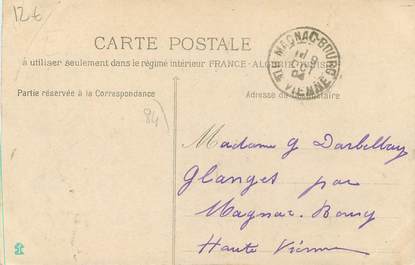 12€
CARTE POSTALE
à utiliser seulement dans le régime intérieur FRANCE-ALGÉRIE-TUNISIE
Partie réservée à la Correspondance
Adresse du Destinataire
MAGNAC-BOURG
HTE VIENNE
84
Madame G Darbellay
Glanges par
Magnac-Bourg
Haute Vienne